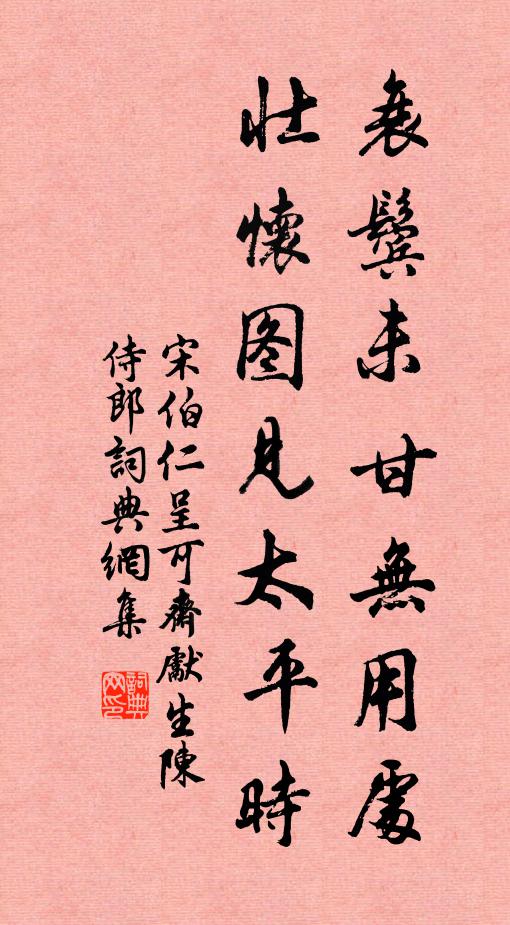 衰鬢未甘無用處
壯懷图見太平時
宋伯仁呈可齋獻生陳
侍郎詞典網集
詞典
网印